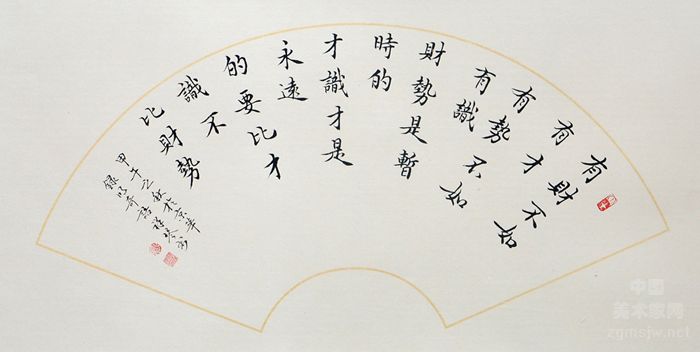 有財不如
有才
有勢不如
有識
財勢是暫
時的
才識才是
永遠
的要比才
識不
比財勢
甲午之秋於京華
錄
中国
美术家网
zgmsjw.net